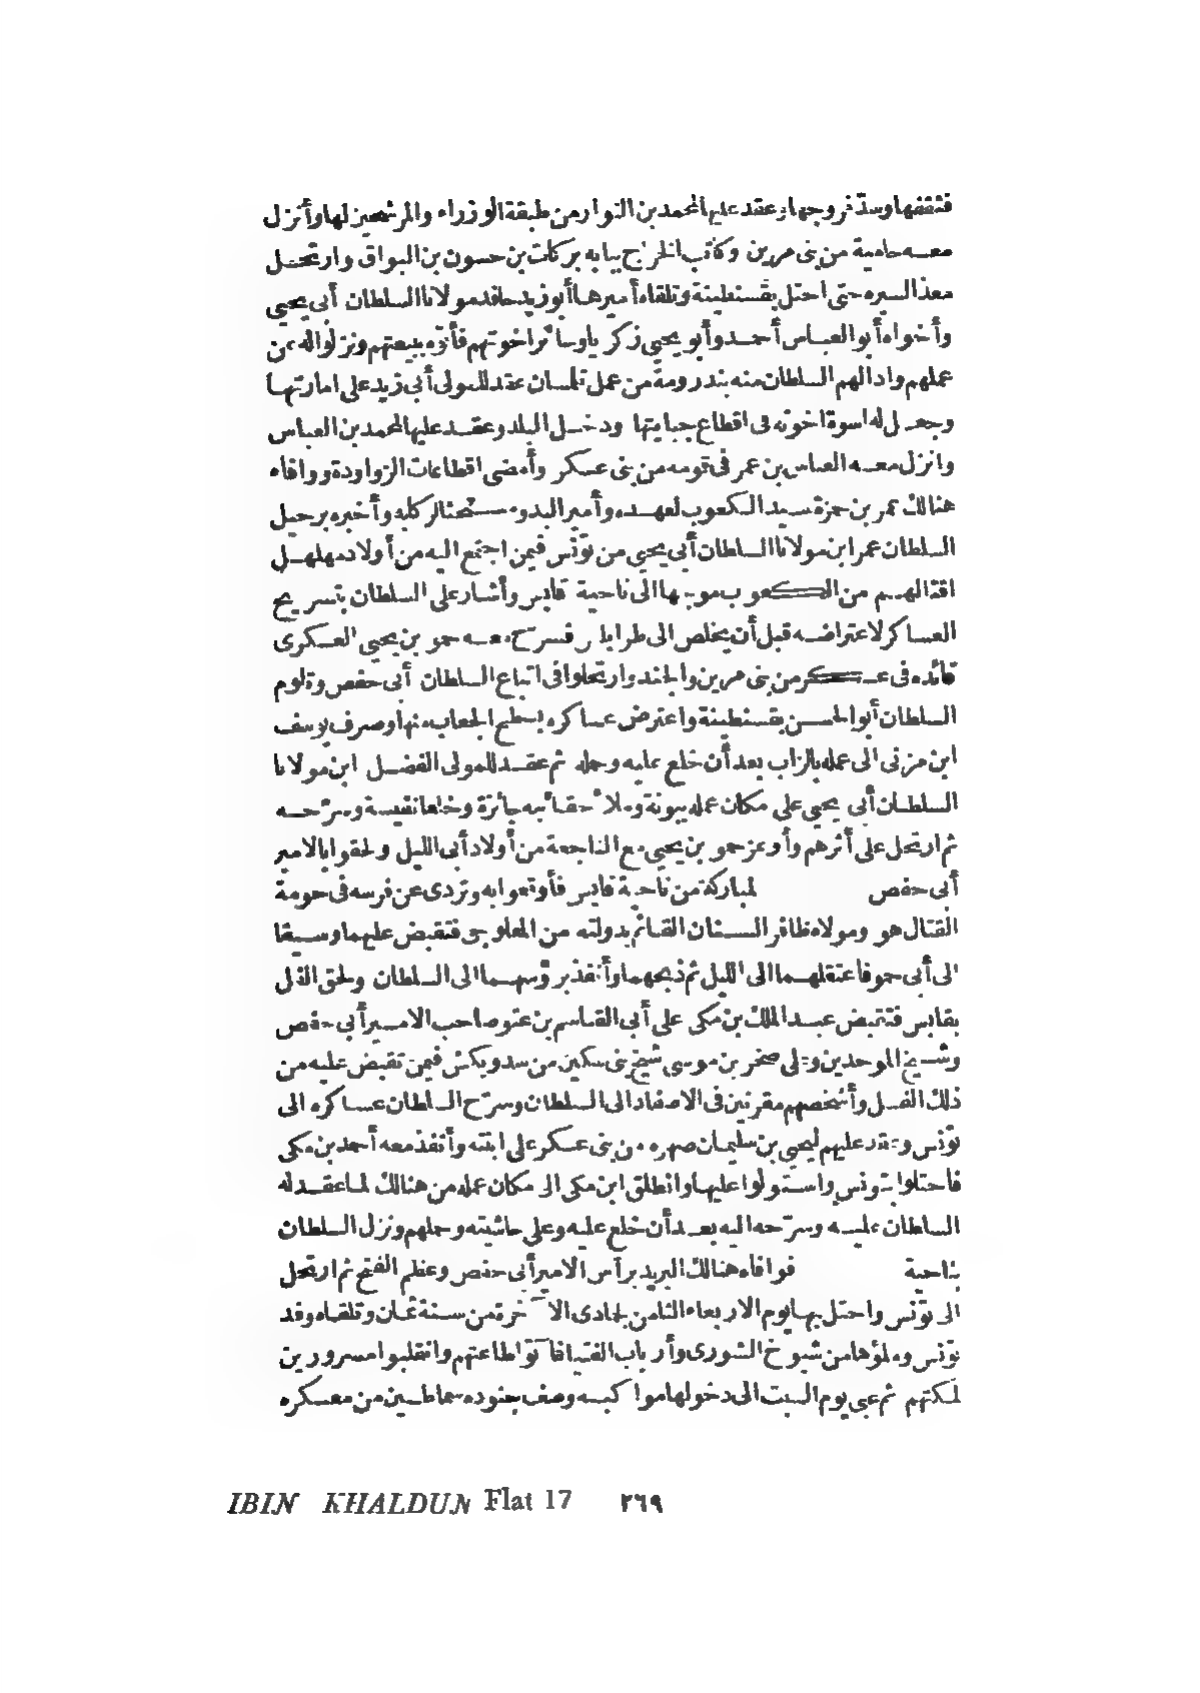 فثقفها وسدّ فروجها وعقد عليها لمحمد بن النوار من طبقة الوزراء والمرشحين لها وأنزل
معه حامية من بنى مرين وكاتب الخراج ببابه بركات بن حسون بن البواق وارتحل
معذ السيره حتى احتل بقسنطينة وتلقاه أميرها أبو زيد حافد مولانا السلطان أبى يحيى
وأخواه أبو العباس أحمد وأبو يحيى زكريا وسائر اخوتهم فأتوه ببيعتهم ونزلوا له عن
عملهم وادالهم السلطان منه بندرومة من عمل تلمسان عقد للمولى أبى زيد على امارتها
وجعل له اسوة اخوته فى اقطاع جبايتها ودخل البلد وعقد عليها لمحمد بن العباس
وانزل معه العباس بن عمر فى قومه من بنى عسكر وأمضى اقطاعات الزواودة ووافاه
هنالك عمر بن حمزة سيد الكعوب لعهده وأمير البدو مستحثا لركابه وأخبره برحيل
السلطان عمر ابن مولانا السلطان أبى يحيى من تونس فيمن اجتمع اليه من أولاد مهلهل
اقتالهم من الكعوب موجها الى ناحية قابس وأشار على السلطان بتسريح
العساكر لاعتراضه قبل أن يخلص الى طرابلس فسرّح معه حمو بن يحيى العسكرى
قائده فى عسكر من بنى مرين والجند وارتحلوا فى اتباع السلطان أبى حفص وتلوم
السلطان أبو الحسن بقسنطينة واعترض عساكره بسطح الجعاب منها وصرف يوسف
ابن مزنى الى عمله بالزاب بعد أن خلع عليه وحمله ثم عقد للمولى الفضل ابن مولانا
السلطان أبى يحيى على مكان عمله ببونة وملأ حقائبه جائزة وخلعا نفيسة وسرّحه
ثم ارتحل على أثرهم وأوعز حمو بن يحيى مع الناجعة من أولاد أبى الليل ولحقوا بالامير
أبى حفص لمباركة من ناحية قابس فأوقعوا به وتردى عن فرسه فى حومة
القتال هو ومولاه ظافر السنان القائم بدولته من المعلوجى فتقبض عليهما وسيقا
الى أبى حمو فاعتقلهما الى الليل ثم ذبحهما وأنفذ برؤسهما الى السلطان ولحق الفل
بقابس فتقبض عبد الملك بن مكى على أبى القاسم بن عتو صاحب الامير أبى حفص
وشيخ الموحدين وعلى صخر بن موسى شيخ بنى سكين من سدويكش فيمن تقبض عليه من
ذلك الفل وأشخصهم مقرنين فى الاصفاد الى السلطان وسرّح السلطان عساكره الى
تونس وعقد عليهم ليحيى بن سليمان صهره من بنى عسكر على ابنته وأنفذ معه أحمد بن مكى
فاحتلوا بتونس واستولوا عليها وانطلق ابن مكى الى مكان عمله من هنالك لما عقد له
السلطان عليه وسرّحه اليه بعد أن خلع عليه وعلى حاشيته وحملهم ونزل السلطان
بناحية فوافاه هنالك البريد برأس الامير أبى حفص وعظم الفتح ثم ارتحل
الى تونس واحتل بها يوم الاربعاء الثامن لجمادى الآخرة من سنة ثمان وتلقاه وفد
تونس وملؤها من شيوخ الشورى وأرباب الفتيا فآتوا طاعتهم وانقلبوا مسرورين
لملكتهم ثم عبى يوم السبت الى دخولها مواكبه وصف جنوده سماطين من معسكره
IBIN KHALDUN Flat 17 ٢٦٩